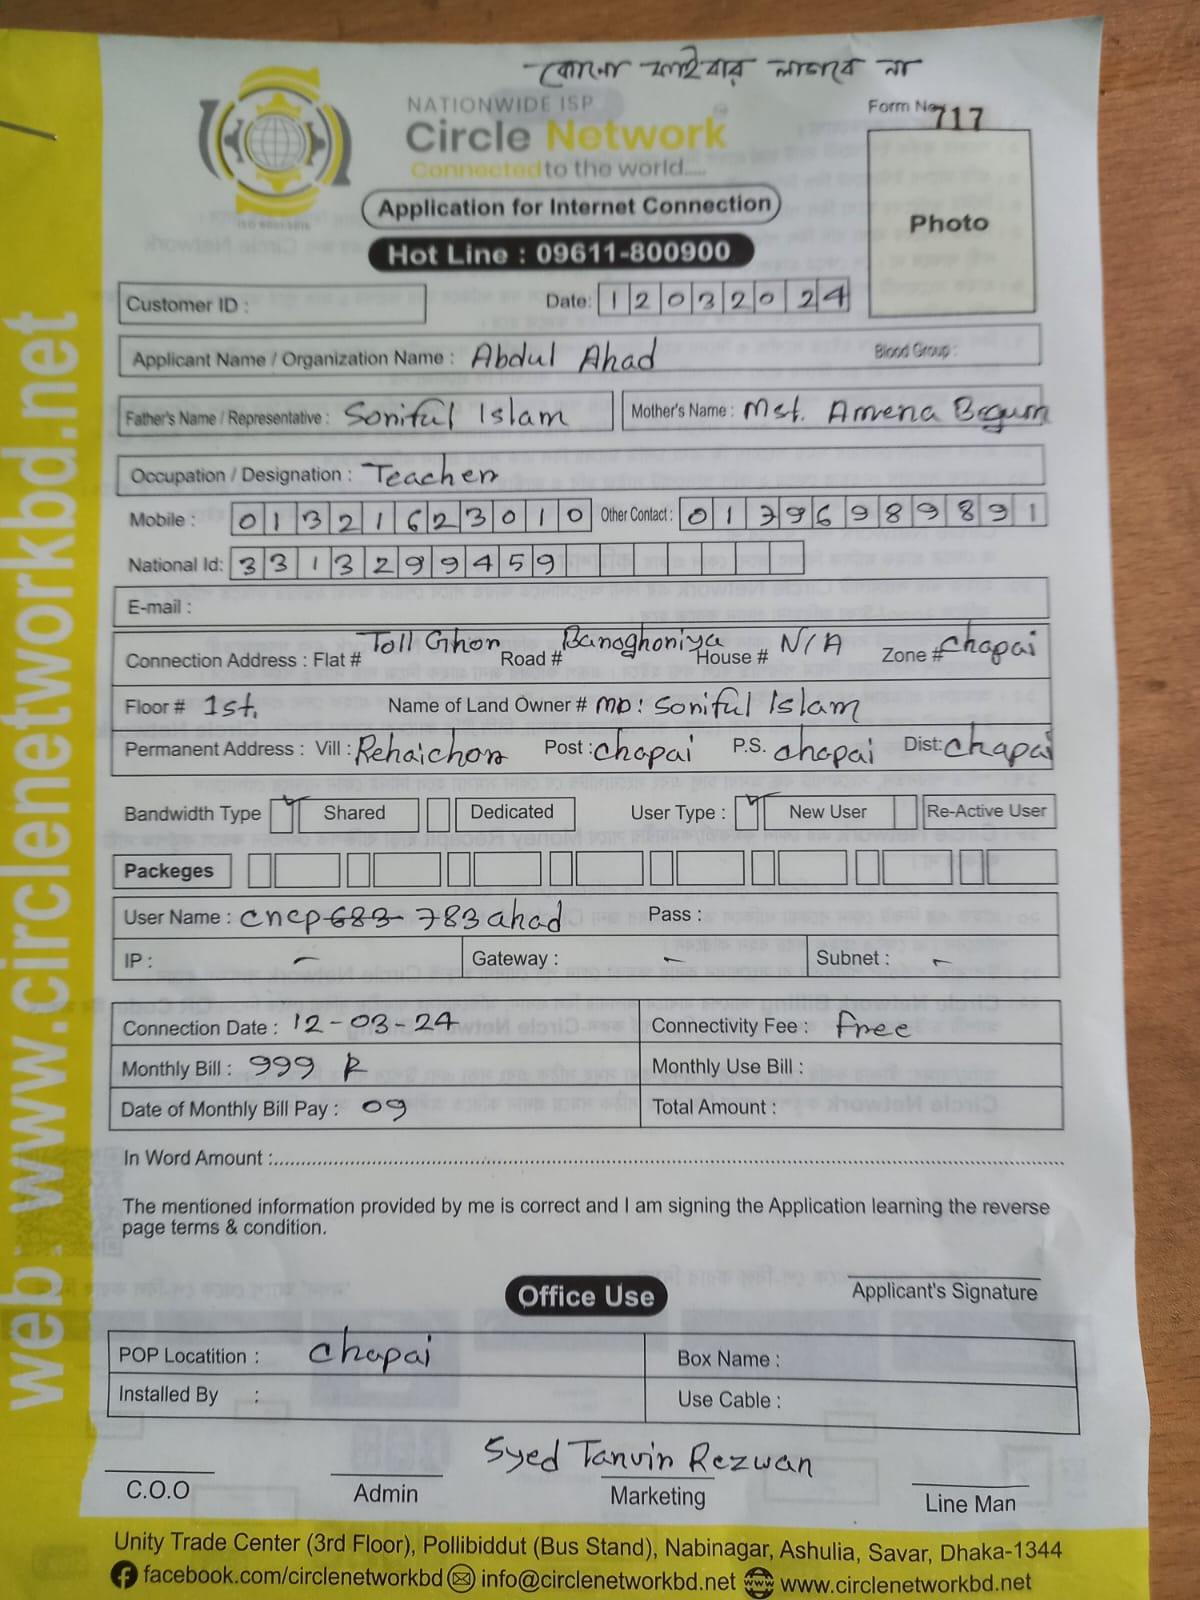 কোনো ফাইবার লাগবে না
NATIONWIDE ISP
Circle Network
Connected to the world.....
Form No. 717
Photo
Application for Internet Connection
Hot Line : 09611-800900
Customer ID :
Date: 12032024
Applicant Name / Organization Name : Abdul Ahad Blood Group :
Father's Name / Representative : Soriful Islam Mother's Name : Mst. Amena Begum
Occupation / Designation : Teacher
Mobile : 01321623010 Other Contact : 01796989891
National Id: 3313299459
E-mail :
Connection Address : Flat # Toll Ghor Road # Baroghoriya House # N/A Zone # Chapai
Floor # 1st. Name of Land Owner # MD: Soriful Islam
Permanent Address : Vill : Rehaichor Post : chapai P.S. chapai Dist: chapai
Bandwidth Type Shared Dedicated User Type : New User Re-Active User
Packeges
User Name : cncp 683 783 ahad Pass :
IP : – Gateway : – Subnet : –
Connection Date : 12-03-24 Connectivity Fee : free
Monthly Bill : 999 Monthly Use Bill :
Date of Monthly Bill Pay : 09 Total Amount :
In Word Amount :
The mentioned information provided by me is correct and I am signing the Application learning the reverse
page terms & condition.
Office Use
Applicant's Signature
POP Locatition : chapai Box Name :
Installed By : Use Cable :
Syed Tanvir Rezwan
C.O.O Admin Marketing Line Man
Unity Trade Center (3rd Floor), Pollibiddut (Bus Stand), Nabinagar, Ashulia, Savar, Dhaka-1344
facebook.com/circlenetworkbd info@circlenetworkbd.net www.circlenetworkbd.net
web: www.circlenetworkbd.net